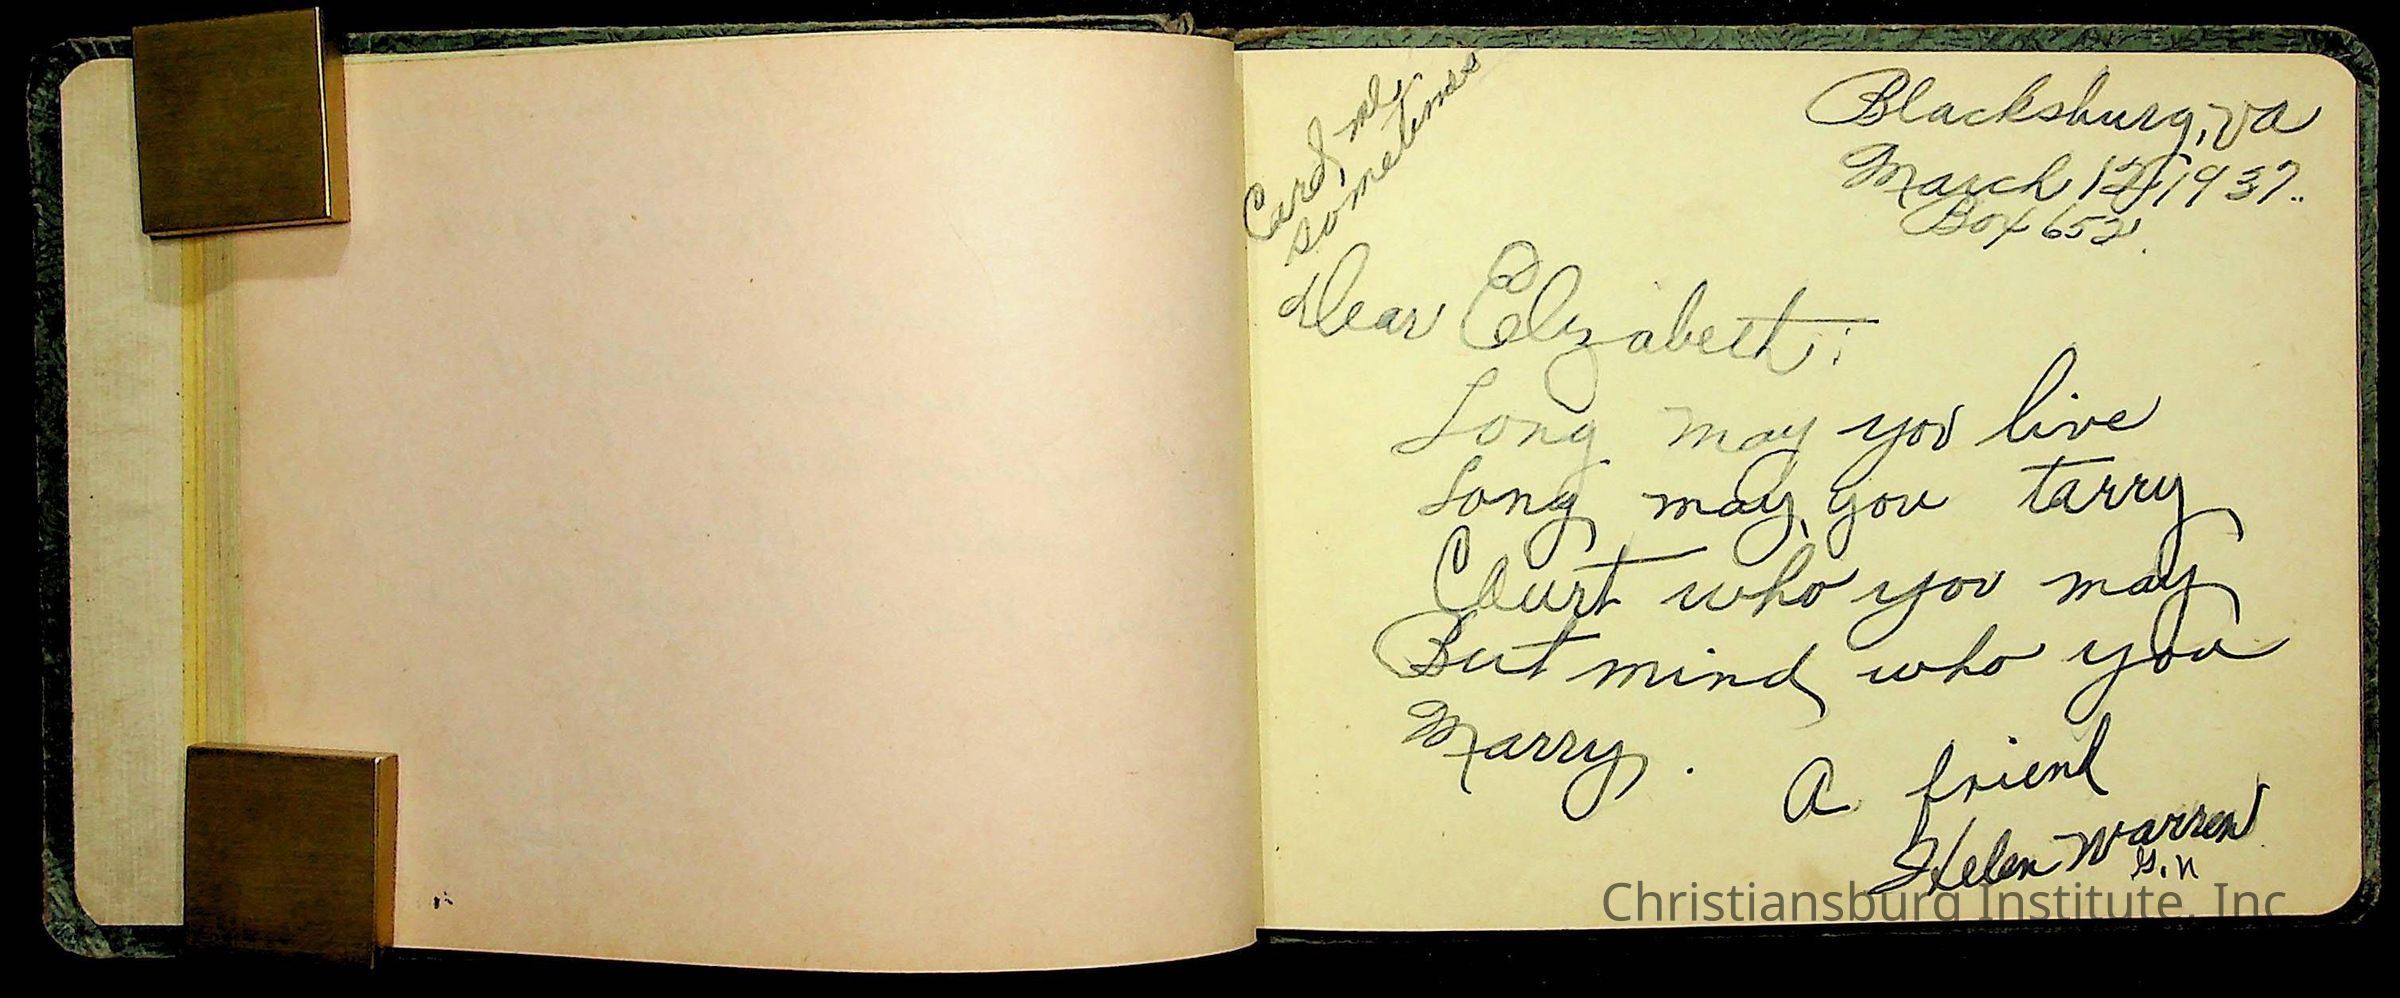 Card me
sometimes
Blacksburg, Va
March 12, 1937.
Box 652.
Dear Elizabeth:
Long may you live
Long may you tarry
Court who you may
But mind who you
Marry.
A friend
Helen Warren
Christiansburg Institute, Inc